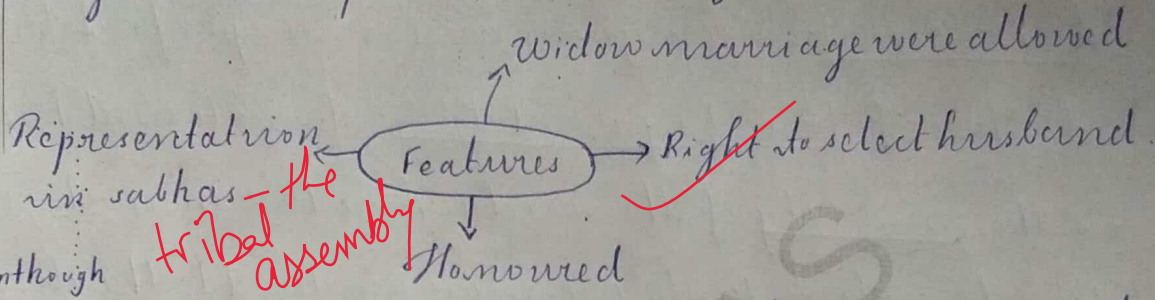 Widow marriage were allowed
Representation
in sabhas – the
tribal
assembly
Features
Right to select husband.
Honoured
nthough
S